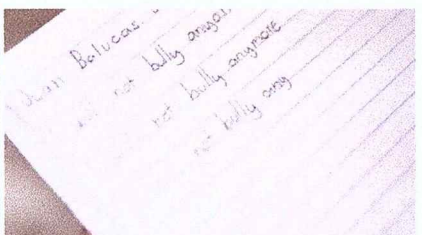 Balucas
not bully anymore
not bully anymore
not bully any